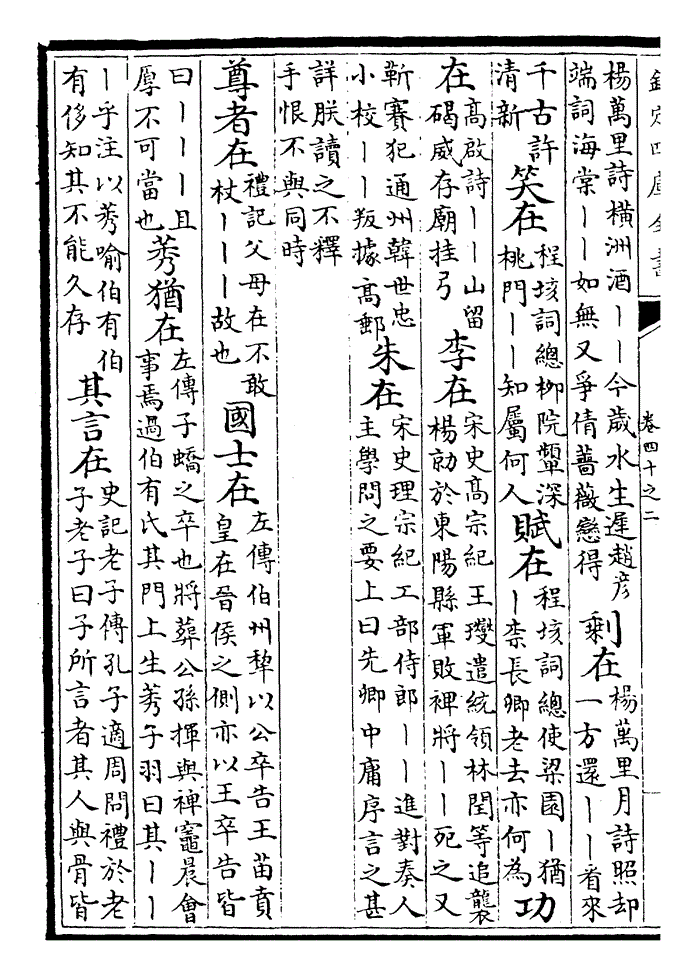 欽定四庫全書 卷四十之二
楊萬里詩橫洲酒丨丨今歲水生遲趙彥端詞海棠丨丨如無又爭倩薔薇戀得 剩在 楊萬里月詩照却一方還丨丨看來
千古許清新 笑在 程垓詞總柳院顰深桃門丨丨知屬何人 賦在 程垓詞總使梁園丨猶丨柰長卿老去亦何為 功
在 高啟詩丨丨山留碣威存廟挂弓 李在 宋史高宗紀王𤫉遣統領林閏等追襲楊勍於東陽縣軍敗裨將丨丨死之又
靳賽犯通州韓世忠小校丨丨叛據高郵 朱在 宋史理宗紀工部侍郎丨丨進對奏人主學問之要上曰先卿中庸序言之甚
詳朕讀之不釋手恨不與同時
尊者在 禮記父母在不敢杖丨丨丨故也 國士在 左傳伯州犂以公卒告王苗賁皇在晉侯之側亦以王卒告皆
曰丨丨丨且厚不可當也 莠猶在 左傳子蟜之卒也將葬公孫揮與裨竈晨會事焉過伯有氏其門上生莠子羽曰其丨丨
丨乎注以莠喻伯有伯有侈知其不能久存 其言在 史記老子傳孔子適周問禮於老子老子曰子所言者其人與骨皆